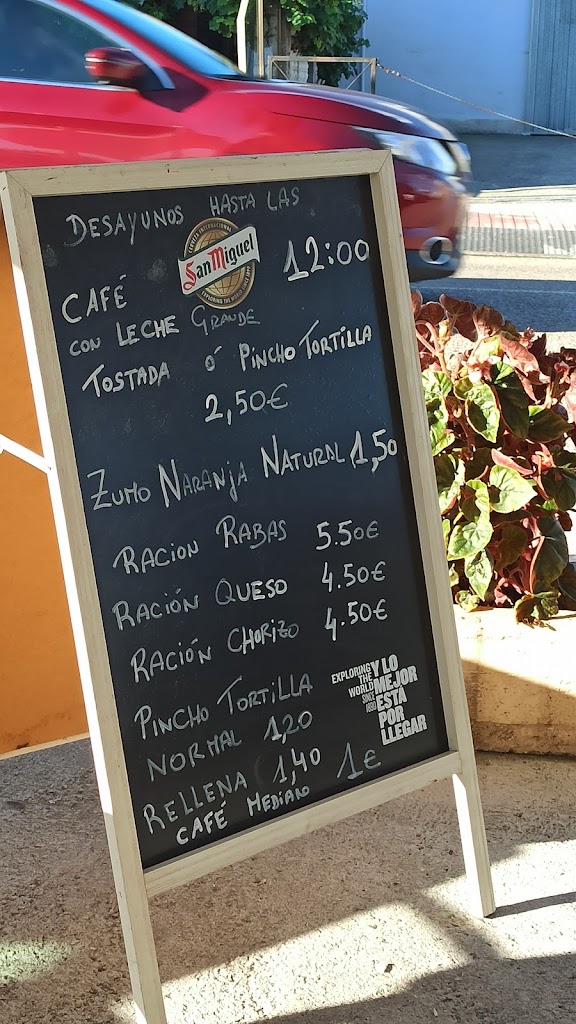 DESAYUNOS HASTA LAS
CERVEZA INTERNACIONAL
San Miguel
EXPLORING THE WORLD SINCE 1890
12:00
CAFÉ
CON LECHE GRANDE
TOSTADA Ó PINCHO TORTILLA
2,50€
ZUMO NARANJA NATURAL 1,50
RACION RABAS 5.50€
RACIÓN QUESO 4.50€
RACIÓN CHORIZO 4.50€
PINCHO TORTILLA
NORMAL 1,20
RELLENA 1,40
CAFÉ MEDIANO 1€
EXPLORING
THE
WORLD
SINCE
1890
Y LO
MEJOR
ESTÁ
POR
LLEGAR